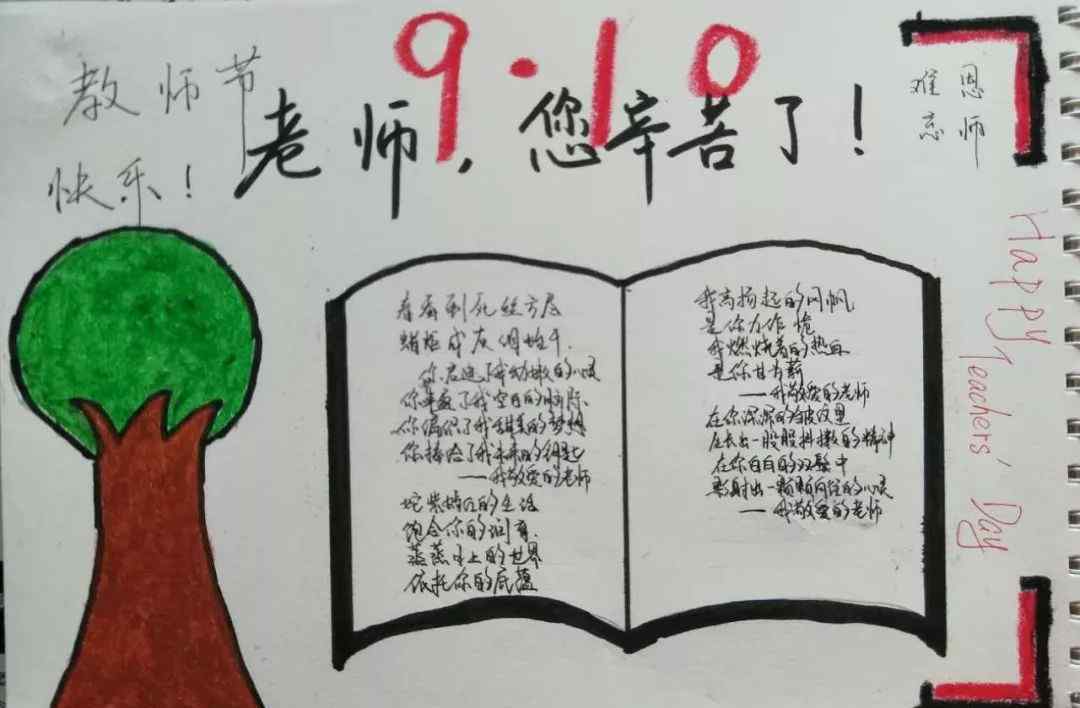 9·10
教师节
快乐！
老师，您辛苦了！
恩师
难忘
Happy Teachers' Day
春蚕到死丝方尽
蜡炬成灰泪始干.
你 了我幼嫩的心灵
你 了我空白的脑际、
你编织了我甜美的梦想
你 给了我未来的钥匙
——我敬爱的老师
的生活
饱含你的润育.
蒸蒸日上的世界
依托你的底蕴
我高扬起的风帆
是你力作桅
我燃烧着的热血
是你甘为薪
——我敬爱的老师
在你深深的皱纹里
一股股抖擞的精神
在你白白的双鬓中
射出一颗颗向往的心灵
——我敬爱的老师